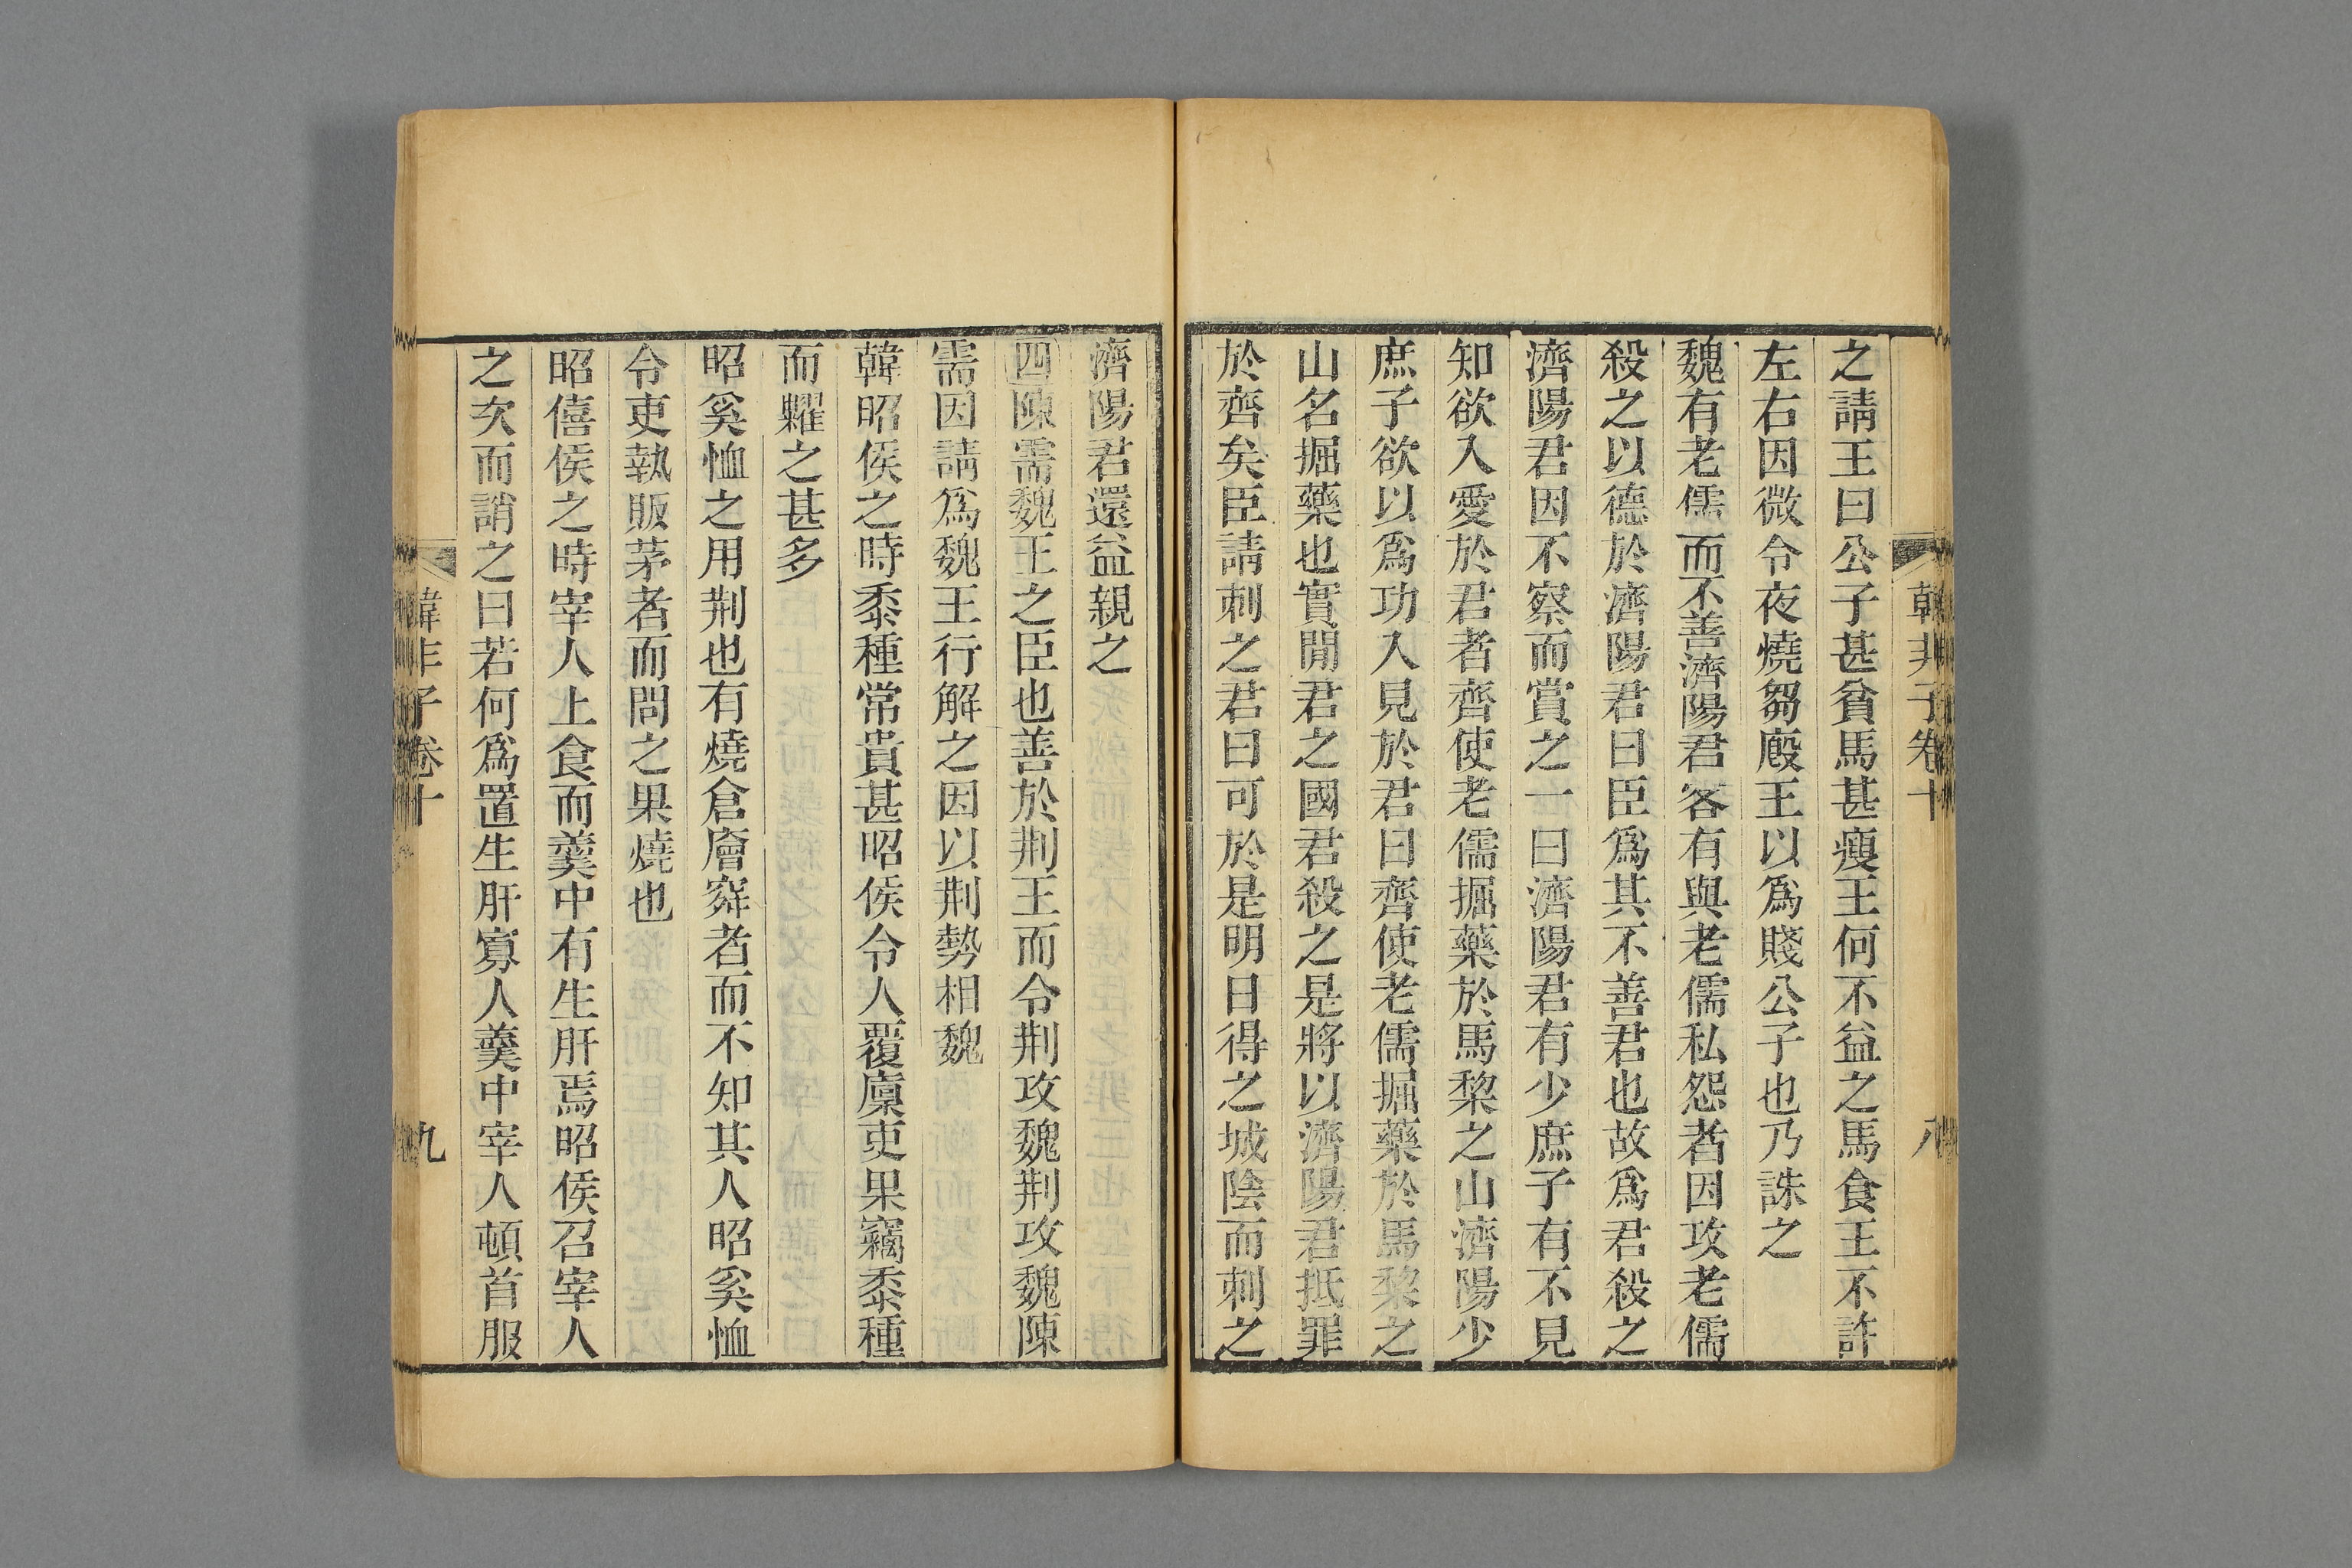 韓非子卷十 八
之請王曰公子甚貧馬甚瘦王何不益之馬食王不許
左右因微令夜燒芻廄王以爲賤公子也乃誅之
魏有老儒而不善濟陽君客有與老儒私怨者因攻老儒
殺之以德於濟陽君曰臣爲其不善君也故爲君殺之
濟陽君因不察而賞之一曰濟陽君有少庶子有不見
知欲入愛於君者齊使老儒掘藥於馬棃之山濟陽少
庶子欲以爲功入見於君曰齊使老儒掘藥於馬棃之
山名掘藥也實閒君之國君殺之是將以濟陽君抵罪
於齊矣臣請刺之君曰可於是明日得之城陰而刺之
濟陽君還益親之
四陳需魏王之臣也善於荆王而令荆攻魏荆攻魏陳
需因請爲魏王行解之因以荆勢相魏
韓昭侯之時黍種常貴甚昭侯令人覆廩吏果竊黍種
而糶之甚多
昭奚恤之用荆也有燒倉廥窌者而不知其人昭奚恤
令吏執販茅者而問之果燒也
昭僖侯之時宰人上食而羹中有生肝焉昭侯召宰人
之次而誚之曰若何爲置生肝寡人羹中宰人頓首服
韓非子卷十 九